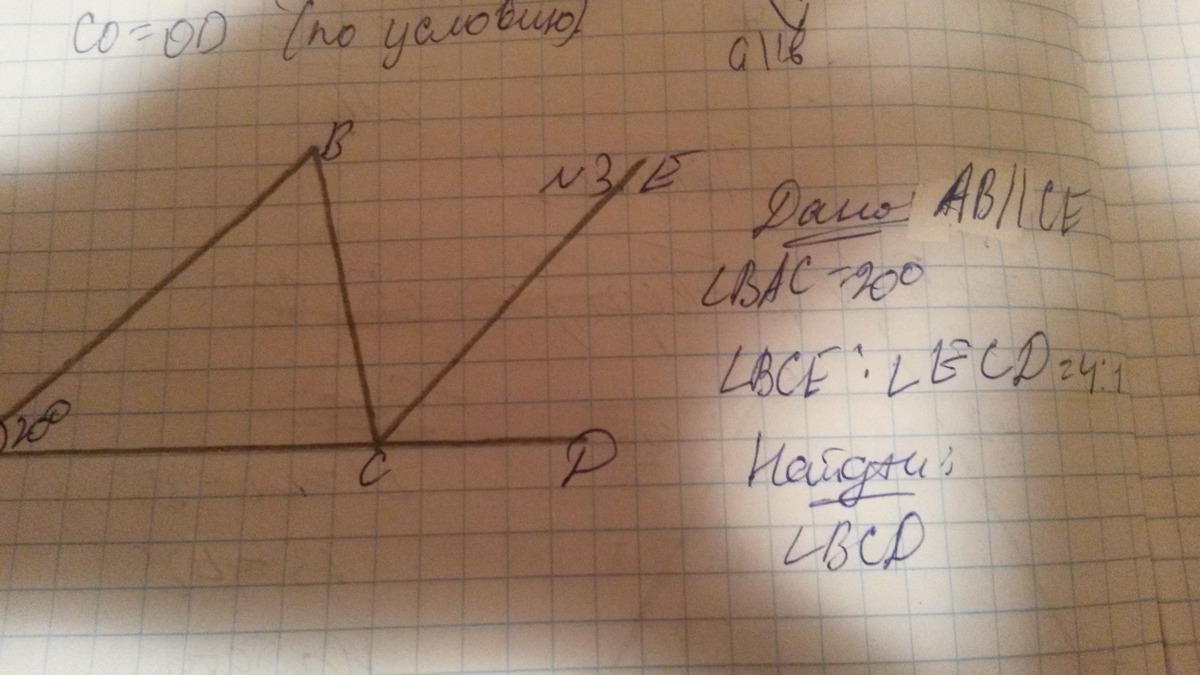 CO=OD (по условию)
a||b
B
N3 E
Дано: AB//CE
∠BAC=20°
∠BCE : ∠ECD=4:1
20°
C
D
Найти:
∠BCD